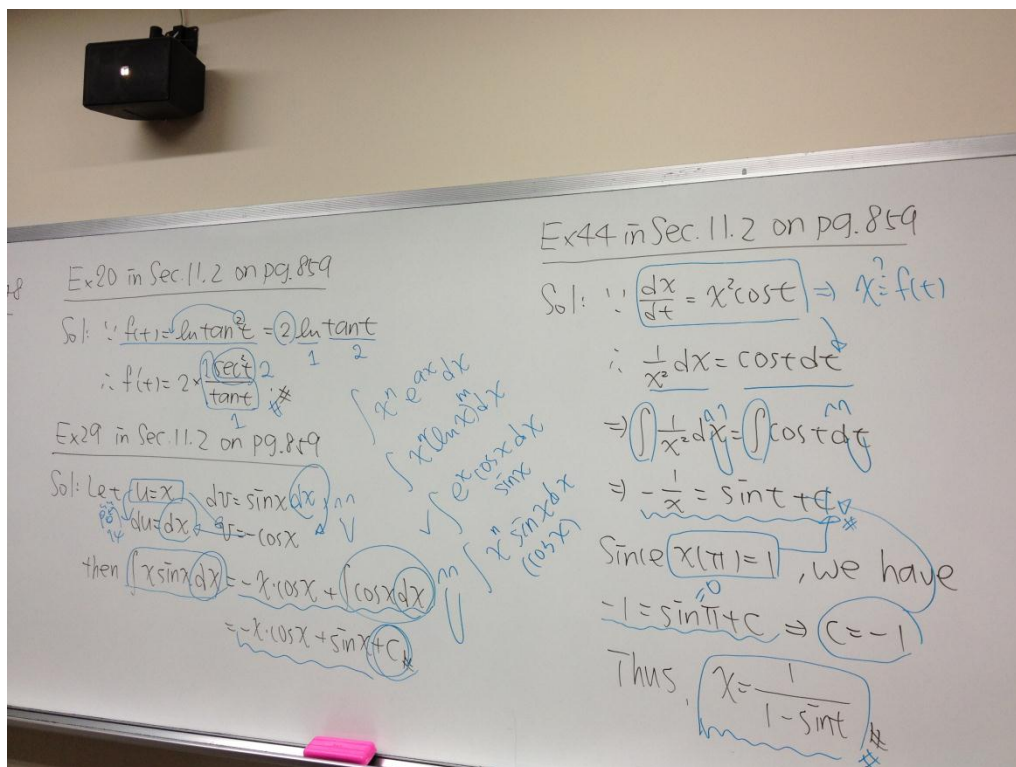 Ex20 in Sec.11.2 on pg.859
Sol: ∵ f(t)=ln tan²t = 2 ln tant
1 2
∴ f'(t) = 2 × 1 sec²t / tant 2 #
1
Ex29 in Sec.11.2 on pg.859
Sol: Let u=x dv=sinx dx
du=dx v=-cosx
then ∫x sinx dx = -x·cosx + ∫cosx dx
= -x·cosx + sinx + C #
∫xⁿ e^{ax} dx
∫xⁿ(lnx)^m dx
√∫e^x cosx dx
sinx
∫xⁿ sinx dx
(cosx)
Ex44 in Sec.11.2 on pg.859
Sol: ∵ dx/dt = x²cost ⇒ x ?= f(t)
∴ 1/x² dx = cost dt
⇒ ∫ 1/x² dx = ∫cost dt
⇒ -1/x = sint + C #
Since x(π)=1, we have
=0
-1 = sinπ + C ⇒ C=-1
Thus, x = 1/(1-sint) #
#